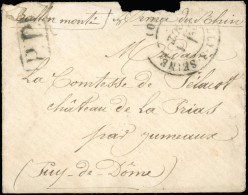 Ballon monté Armée du Rhin
P.P.
SEINE
La Comtesse de
Château de La Prias
par Jumeaux
(Puy-de-Dôme)